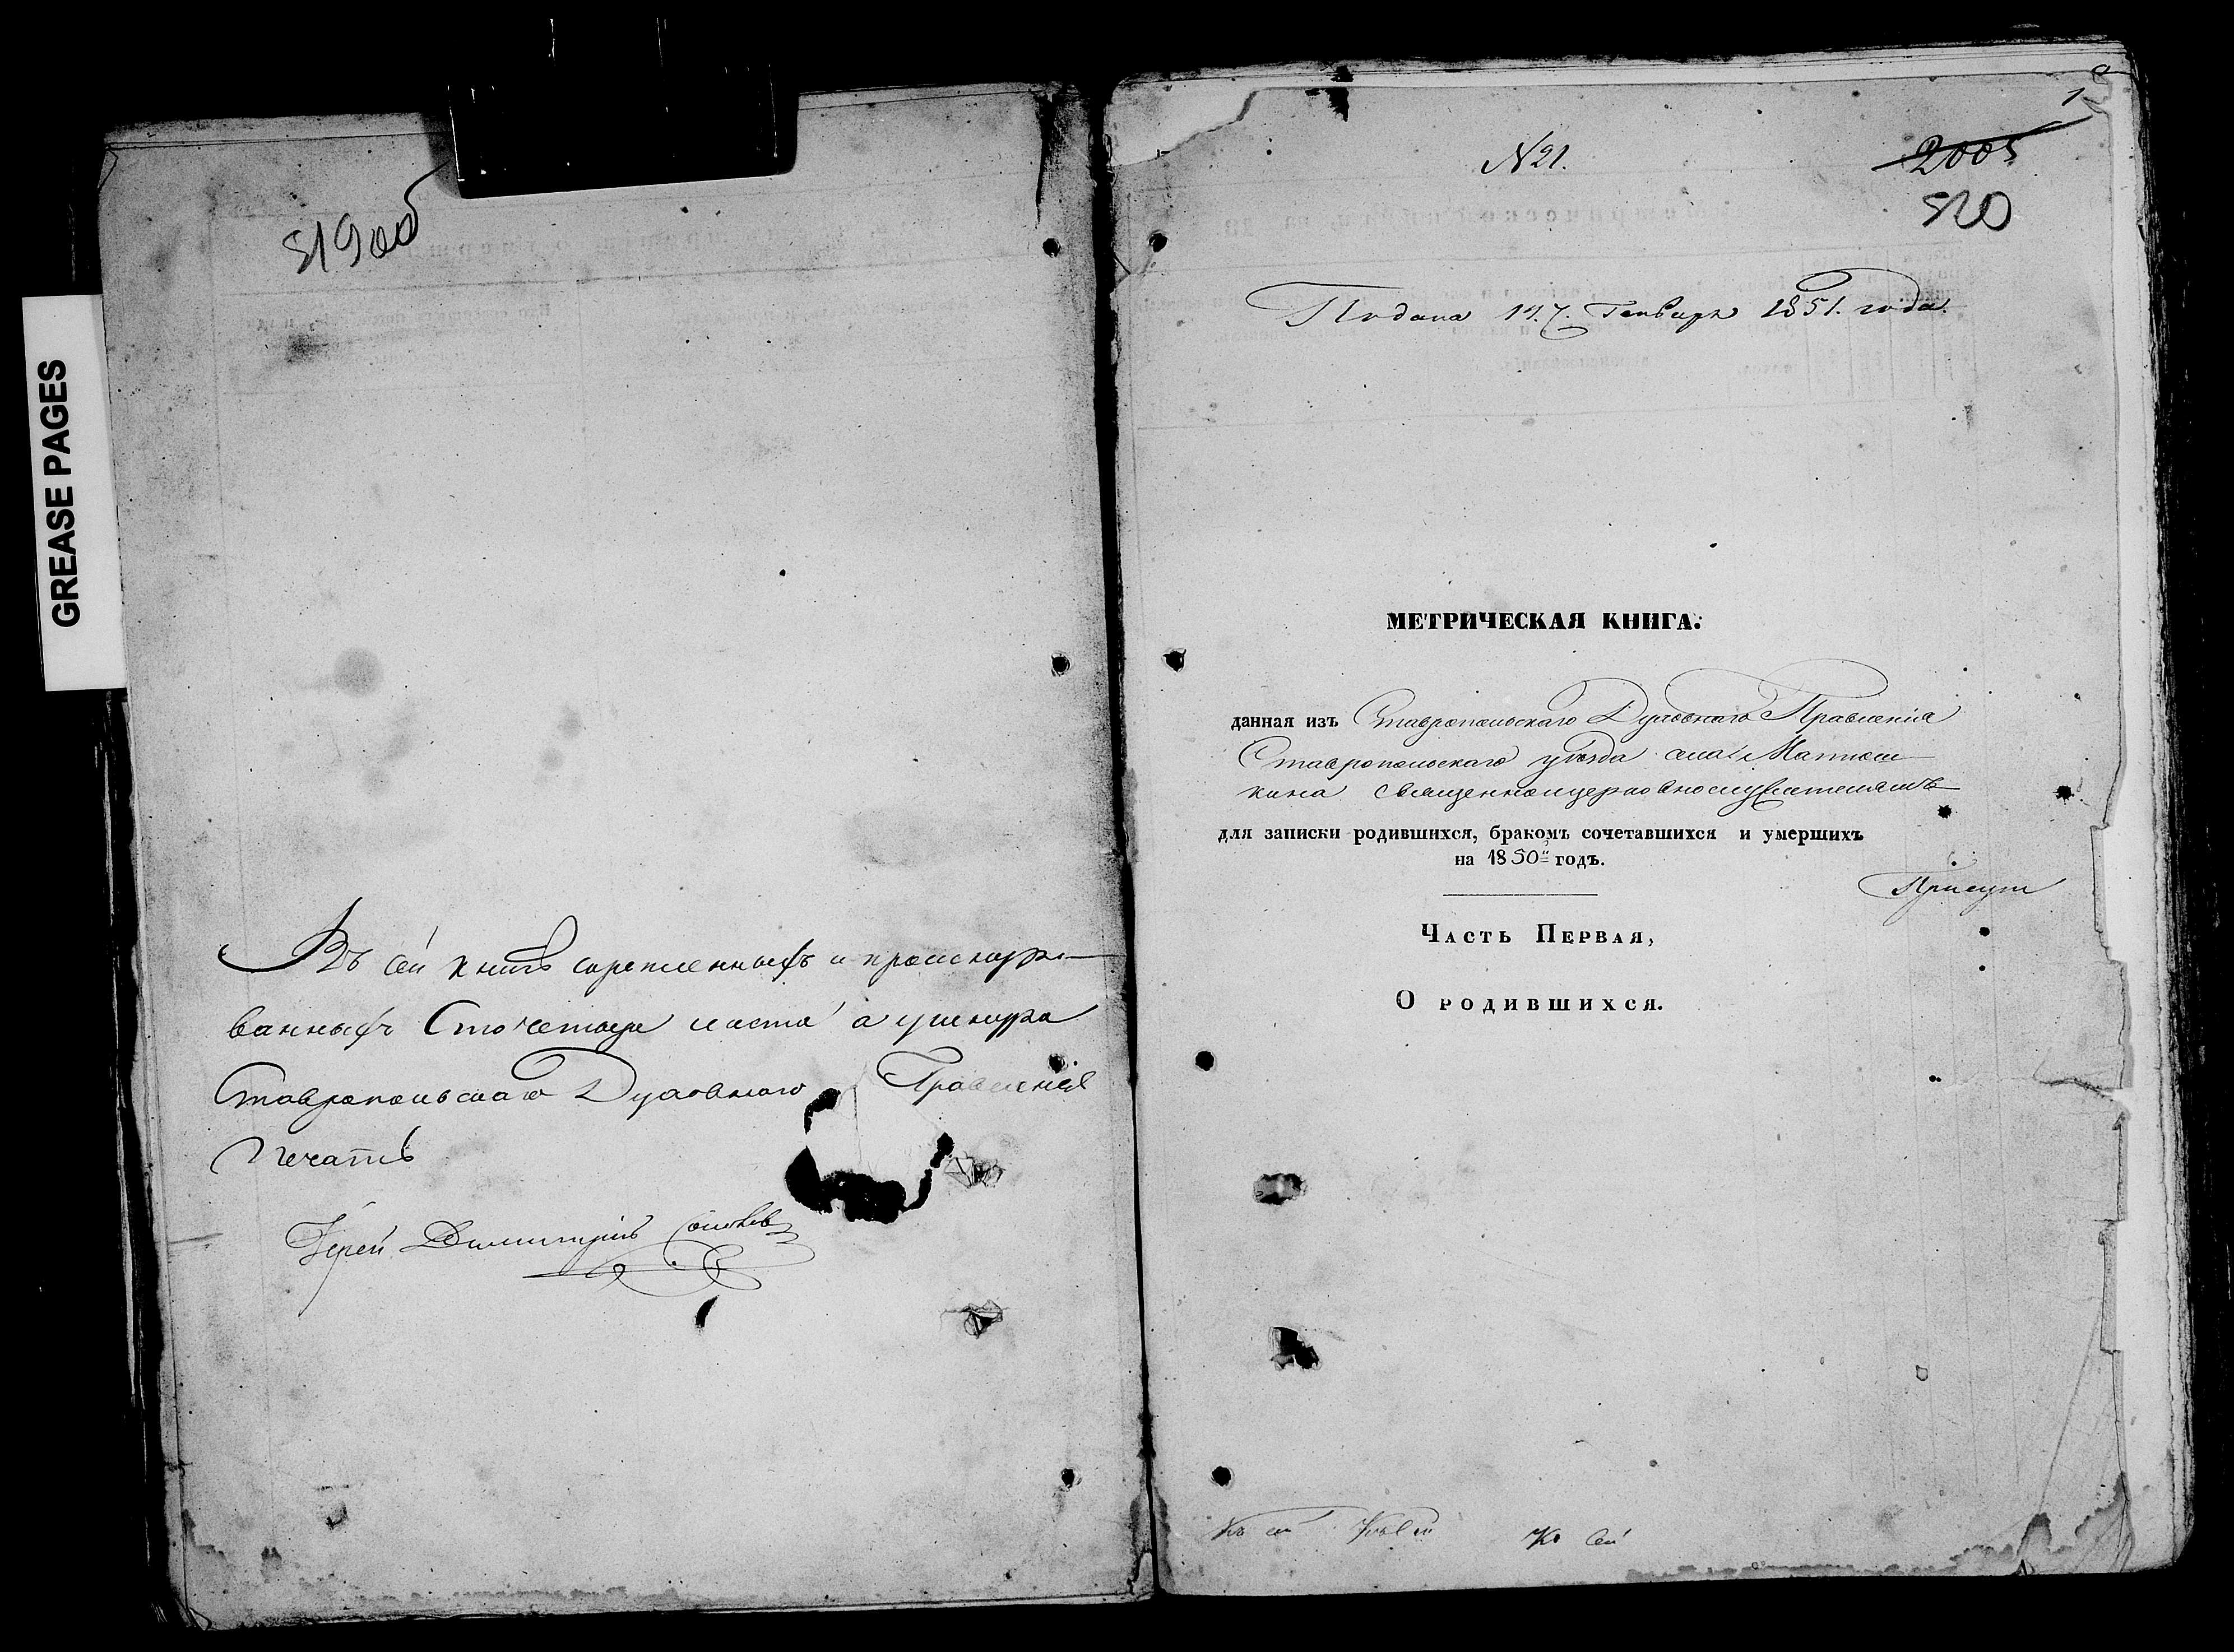 GREASE PAGES
519об
Въ сей книгѣ скрепленныхъ и прошнуро-
ванныхъ Сто четыре листа а у шнура
Ставропольскаго Духовнаго Правленія
печать
Іерей Димитрій
1
N 21.
2005
520
Подана 17. Генваря 1851. года.
МЕТРИЧЕСКАЯ КНИГА.
данная изъ Ставропольскаго Духовнаго Правленія
Ставропольскаго уѣзда села Матюш-
кина священноцерковнослужителямъ
для записки родившихся, бракомъ сочетавшихся и умершихъ
на 1850й годъ.
Присут
Часть Первая,
О родившихся.
Къ сей
Къ сей